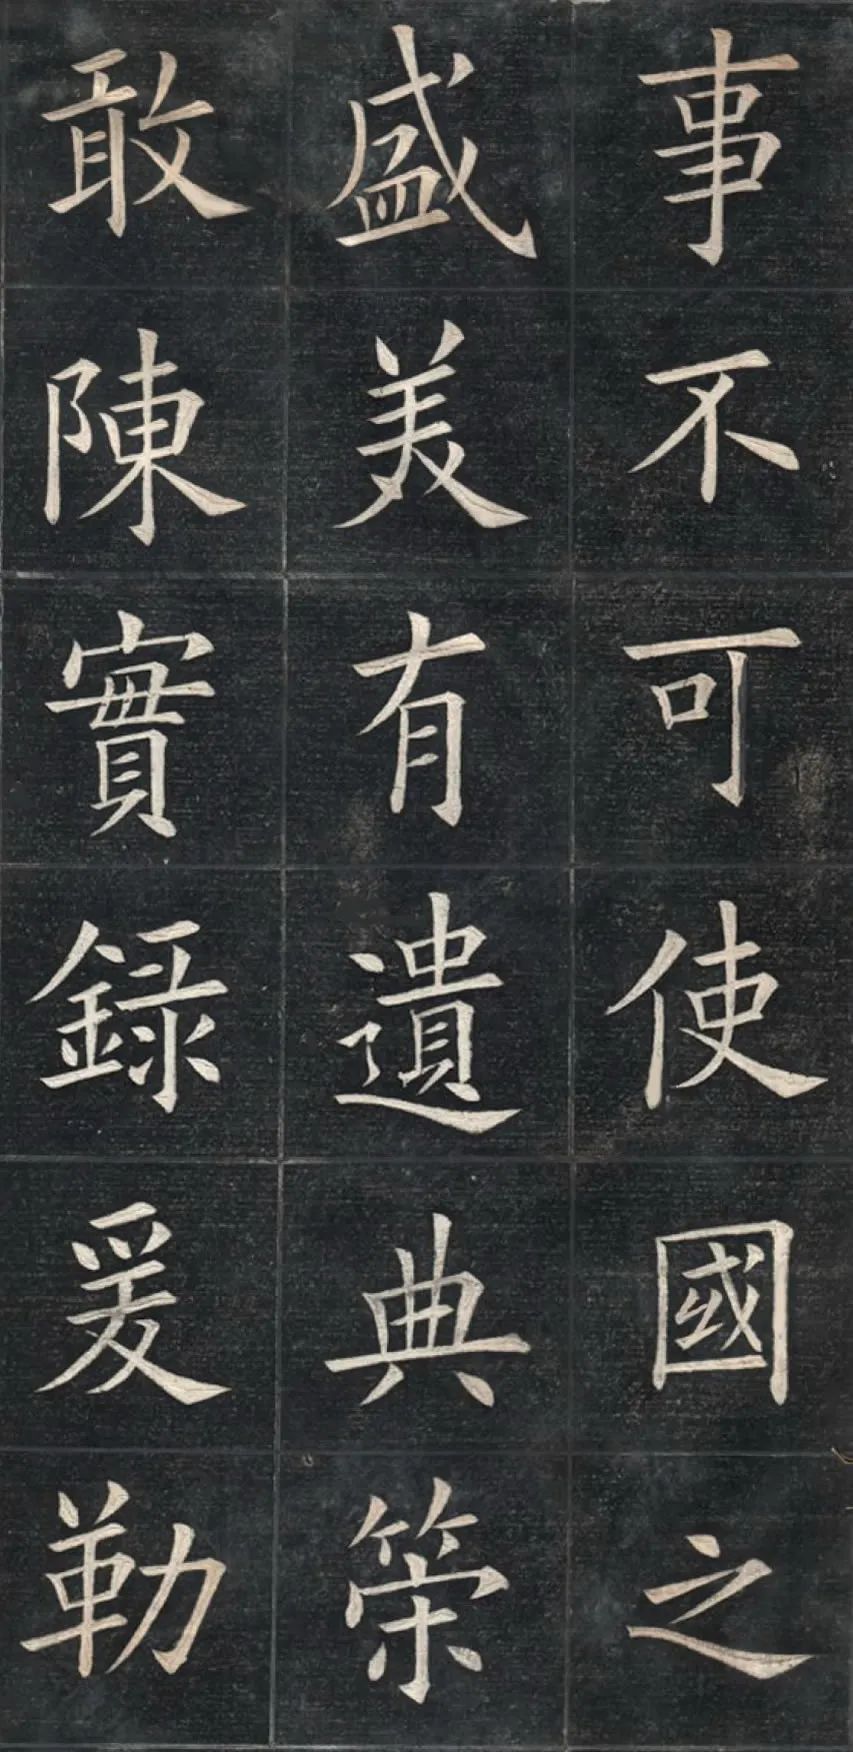 事不可使國之
盛美有遺典策
敢陳實錄爰勒